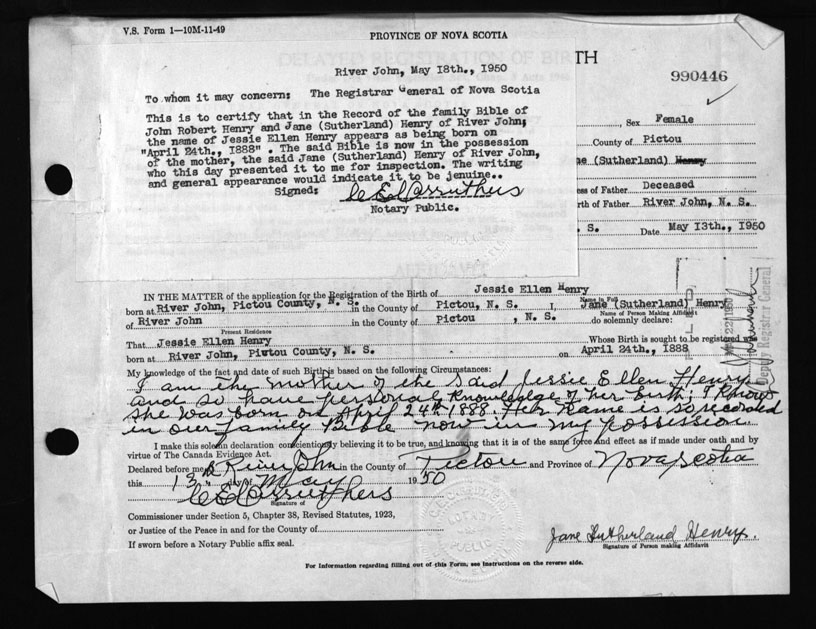 V.S. Form 1—10M-11-49
PROVINCE OF NOVA SCOTIA
DELAYED REGISTRATION OF BIRTH
990446
River John, May 18th., 1950
To whom it may concern: The Registrar General of Nova Scotia
This is to certify that in the Record of the family Bible of
John Robert Henry and Jane (Sutherland) Henry of River John,
the name of Jessie Ellen Henry appears as being born on
"April 24th., 1888" . The said Bible is now in the possession
of the mother, the said Jane (Sutherland) Henry of River John,
who this day presented it to me for inspection. The writing
and general appearance would indicate it to be jenuine..
Signed: C E Carruthers
Notary Public.
Sex Female
County of Pictou
ne (Sutherland) Henry
ess of Father Deceased
rth of Father River John, N. S.
. S. Date May 13th., 1950
IN THE MATTER of the application for the Registration of the Birth of Jessie Ellen Henry
Name in Full
born at River John, Pictou County, N. S. in the County of Pictou, N. S. I, Jane (Sutherland) Henry
Name of Person Making Affidavit
of River John in the County of Pictou , N. S. do solemnly declare:
Present Residence
That Jessie Ellen Henry Whose Birth is sought to be registered was
born at River John, Pivtou County, N. S. on April 24th., 1888
My knowledge of the fact and date of such Birth is based on the following Circumstances:
I am the mother of the said Jessie Ellen Henry
and so have personal knowledge of her birth; I know
she was born on April 24th 1888. Her name is so recorded
in our family Bible now in my possession.
I make this solemn declaration conscientiously believing it to be true, and knowing that it is of the same force and effect as if made under oath and by
virtue of The Canada Evidence Act.
Declared before me at River John in the County of Pictou and Province of Nova Scotia
this 13th day of May 1950
C E Carruthers
Signature of
Commissioner under Section 5, Chapter 38, Revised Statutes, 1923,
or Justice of the Peace in and for the County of
If sworn before a Notary Public affix seal.
Jane Sutherland Henry.
Signature of Person making Affidavit
For Information regarding filling out of this Form, see Instructions on the reverse side.
Deputy Registrar General